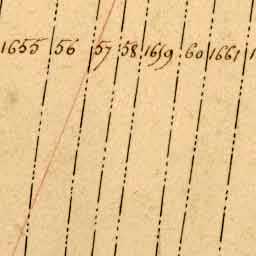 1655 56 57 58 1659 60 1661